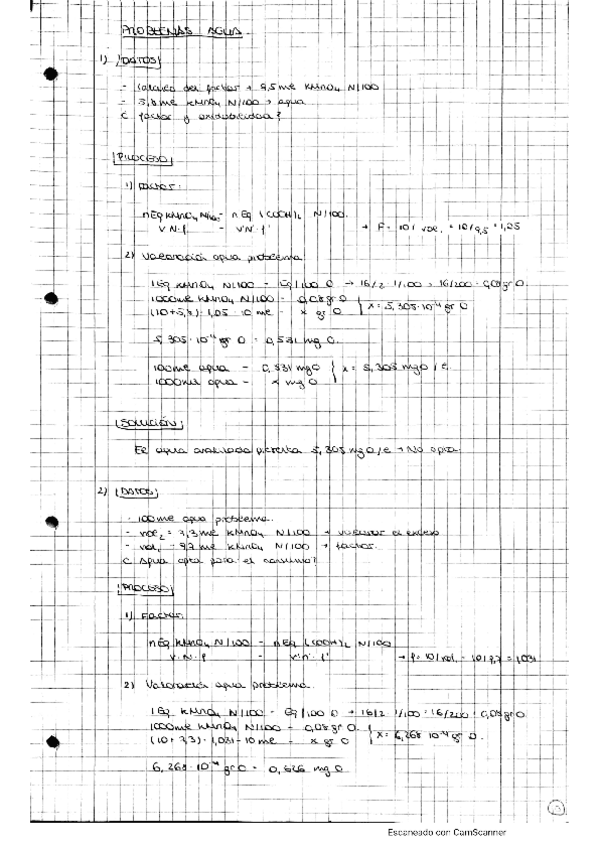 PROBLEMAS AGUA
1) |DATOS|
- Cálculo del factor → 9,5 ml KMnO4 N/100
- 5,8 ml KMnO4 N/100 → agua
¿ factor y oxidabilidad?
|PROCESO|
1) Factor:
nEq KMnO4 N/100 = nEq (COOH)2 N/100.
V·N·f = V'·N'·f' → F = 10/vol1 = 10/9,5 = 1,05
2) Valoración agua problema
1Eq KMnO4 N/100 - Eq/100 O → 16/2·1/100 = 16/200 = 0,08 gr O.
1000 ml KMnO4 N/100 - 0,08 gr O
(10+5,8)·1,05-10 ml - x gr O } x = 5,305·10-4 gr O
5,305·10-4 gr O = 0,531 mg O.
100 ml agua - 0,531 mg O
1000 ml agua - x mg O } x = 5,305 mg O/l.
|SOLUCIÓN|
El agua analizada presenta 5,305 mg O/l → No apta.
2) |DATOS|
- 100 ml agua problema.
- vol2 = 3,3 ml KMnO4 N/100 → valorar el exceso
- vol1 = 9,7 ml KMnO4 N/100 → factor.
¿ Agua apta para el consumo?
|PROCESO|
1) Factor.
nEq KMnO4 N/100 = nEq (COOH)2 N/100
V·N·f = V'·N'·f' → f = 10/vol1 = 10/9,7 = 1,031
2) Valoración agua problema.
1Eq KMnO4 N/100 - Eq/100 O → 16/2·1/100 = 16/200 = 0,08 gr O.
1000 ml KMnO4 N/100 - 0,08 gr O.
(10+3,3)·1,031-10 ml - x gr O } x = 6,268·10-4 gr O.
6,268·10-4 gr O = 0,626 mg O
Escaneado con CamScanner